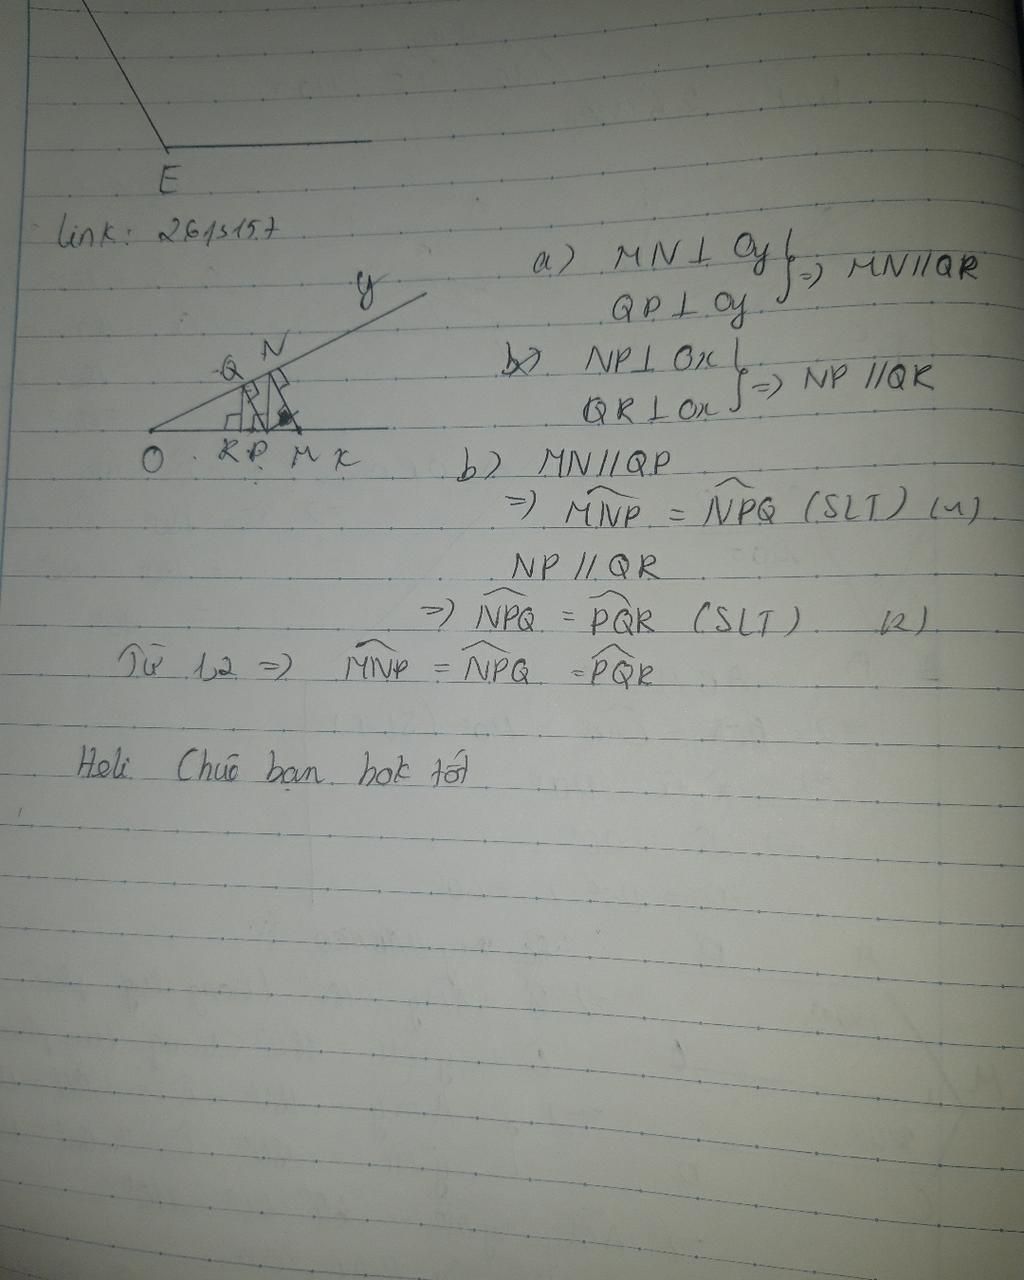 E
link: 2615157
y
Q N
O R P M x
a) MN ⊥ Oy
QP ⊥ Oy
} => MN // QR
NP ⊥ Ox
QR ⊥ Ox
} => NP // QR
b) MN // QP
=> MNP = NPQ (SLT) (1)
NP // QR
=> NPQ = PQR (SLT) (2)
Từ 1,2 => MNP = NPQ = PQR
Chúc bạn hok tốt